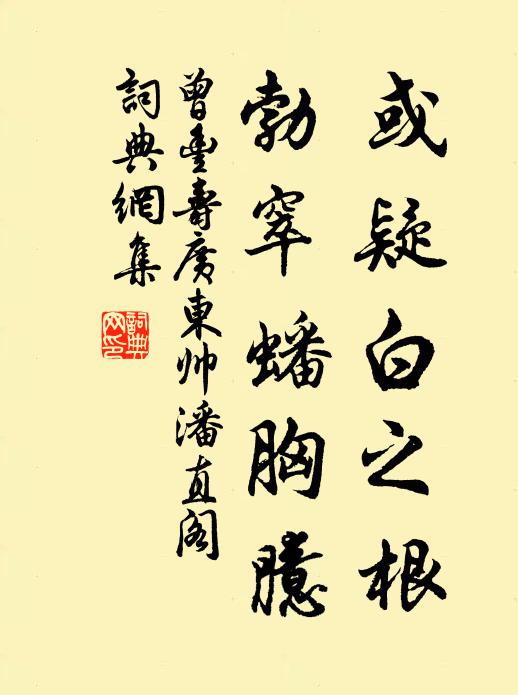 或疑白之根
勃窣蟠胸臆
曾豐壽廣東帅潘直阁
詞典網集
詞典网印